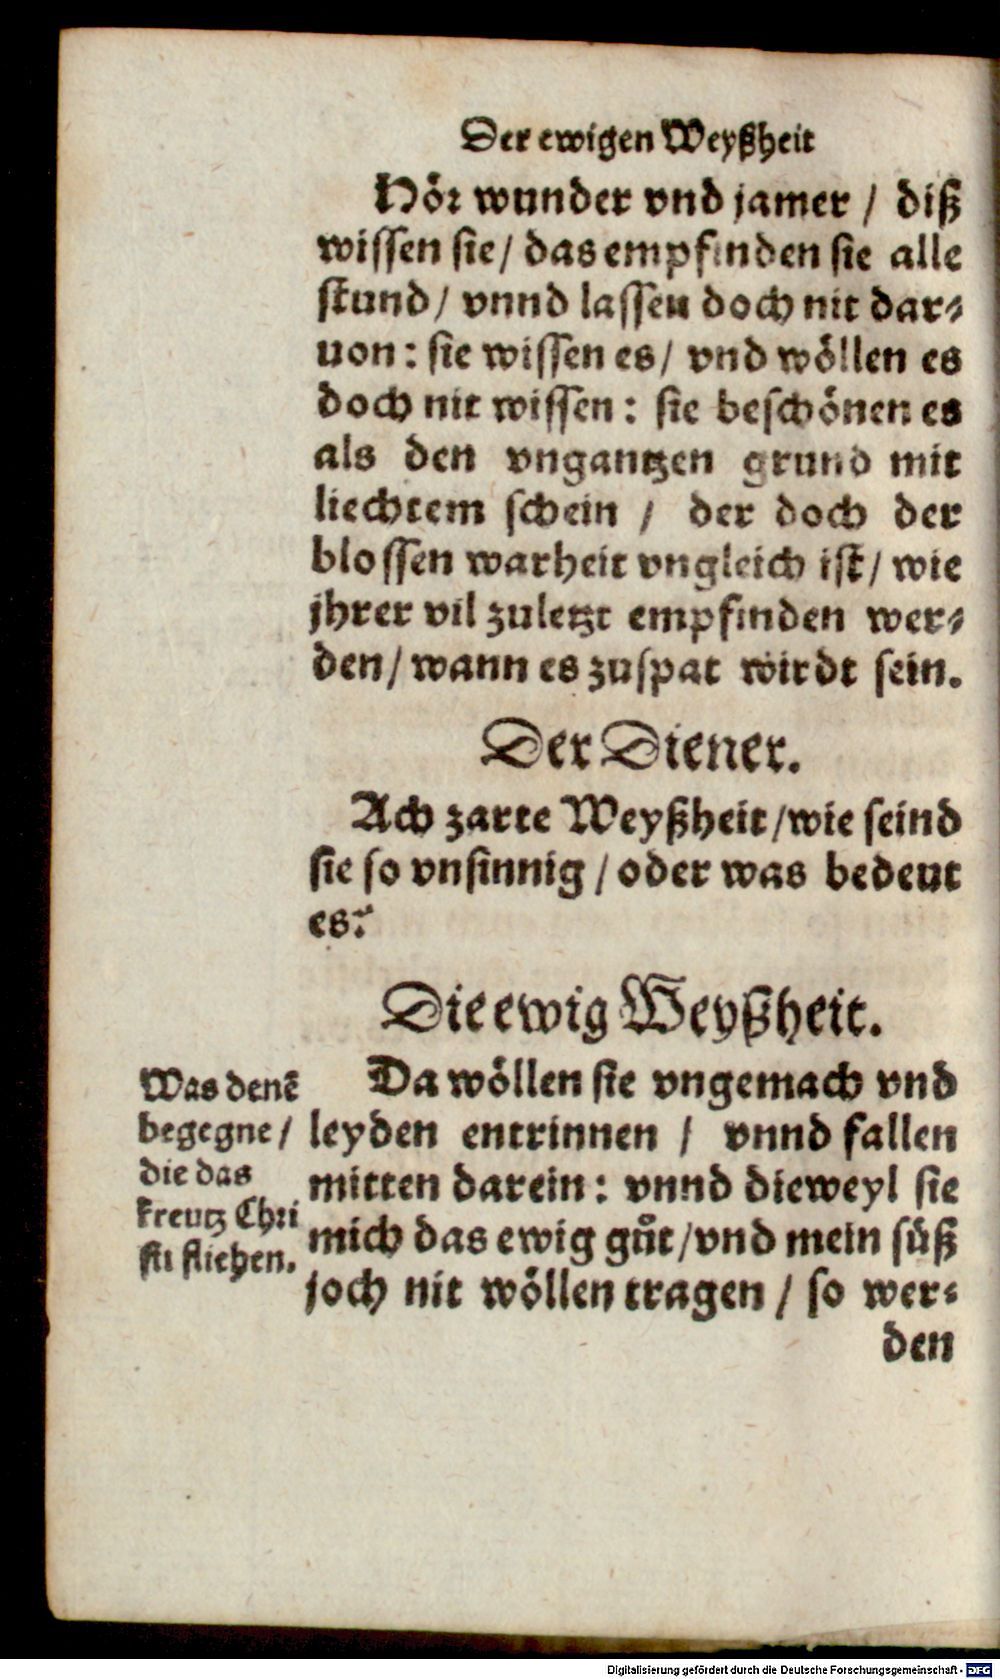 Der ewigen Weyßheit
Hör wunder vnd jamer / diß
wissen sie / das empfinden sie alle
stund / vnnd lassen doch nit dar⸗
uon : sie wissen es / vnd wöllen es
doch nit wissen : sie beschönen es
als den vngantzen grund mit
liechtem schein / der doch der
blossen warheit vngleich ist / wie
jhrer vil zuletzt empfinden wer⸗
den / wann es zuspat wirdt sein.
Der Diener.
Ach zarte Weyßheit / wie seind
sie so vnsinnig / oder was bedeut
es?
Die ewig Weyßheit.
Da wöllen sie vngemach vnd
leyden entrinnen / vnnd fallen
mitten darein : vnnd dieweyl sie
mich das ewig gůt / vnd mein süß
joch nit wöllen tragen / so wer⸗
den
Was denē
begegne /
die das
kreutz Chri
sti fliehen.
Digitalisierung gefördert durch die Deutsche Forschungsgemeinschaft - DFG